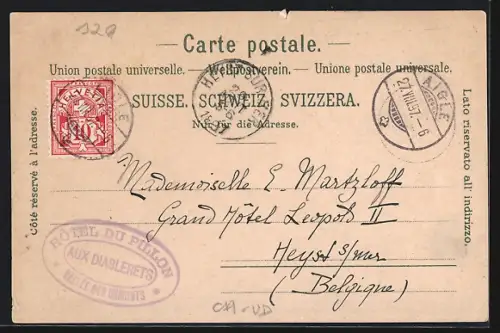 129
Carte postale.
Union postale universelle. — Weltpostverein. — Unione postale universale.
SUISSE. SCHWEIZ. SVIZZERA.
Nur für die Adresse.
Côté réservé à l'adresse.
Lato riservato all' indirizzo.
HELVETIA
10
AIGLE
27.VIII.97.-6
HEYST
Mademoiselle E. Martzloff
Grand Hôtel Leopold II
Heyst s/mer
(Belgique)
HÔTEL DU PILLON
AUX DIABLERETS
CH-VD